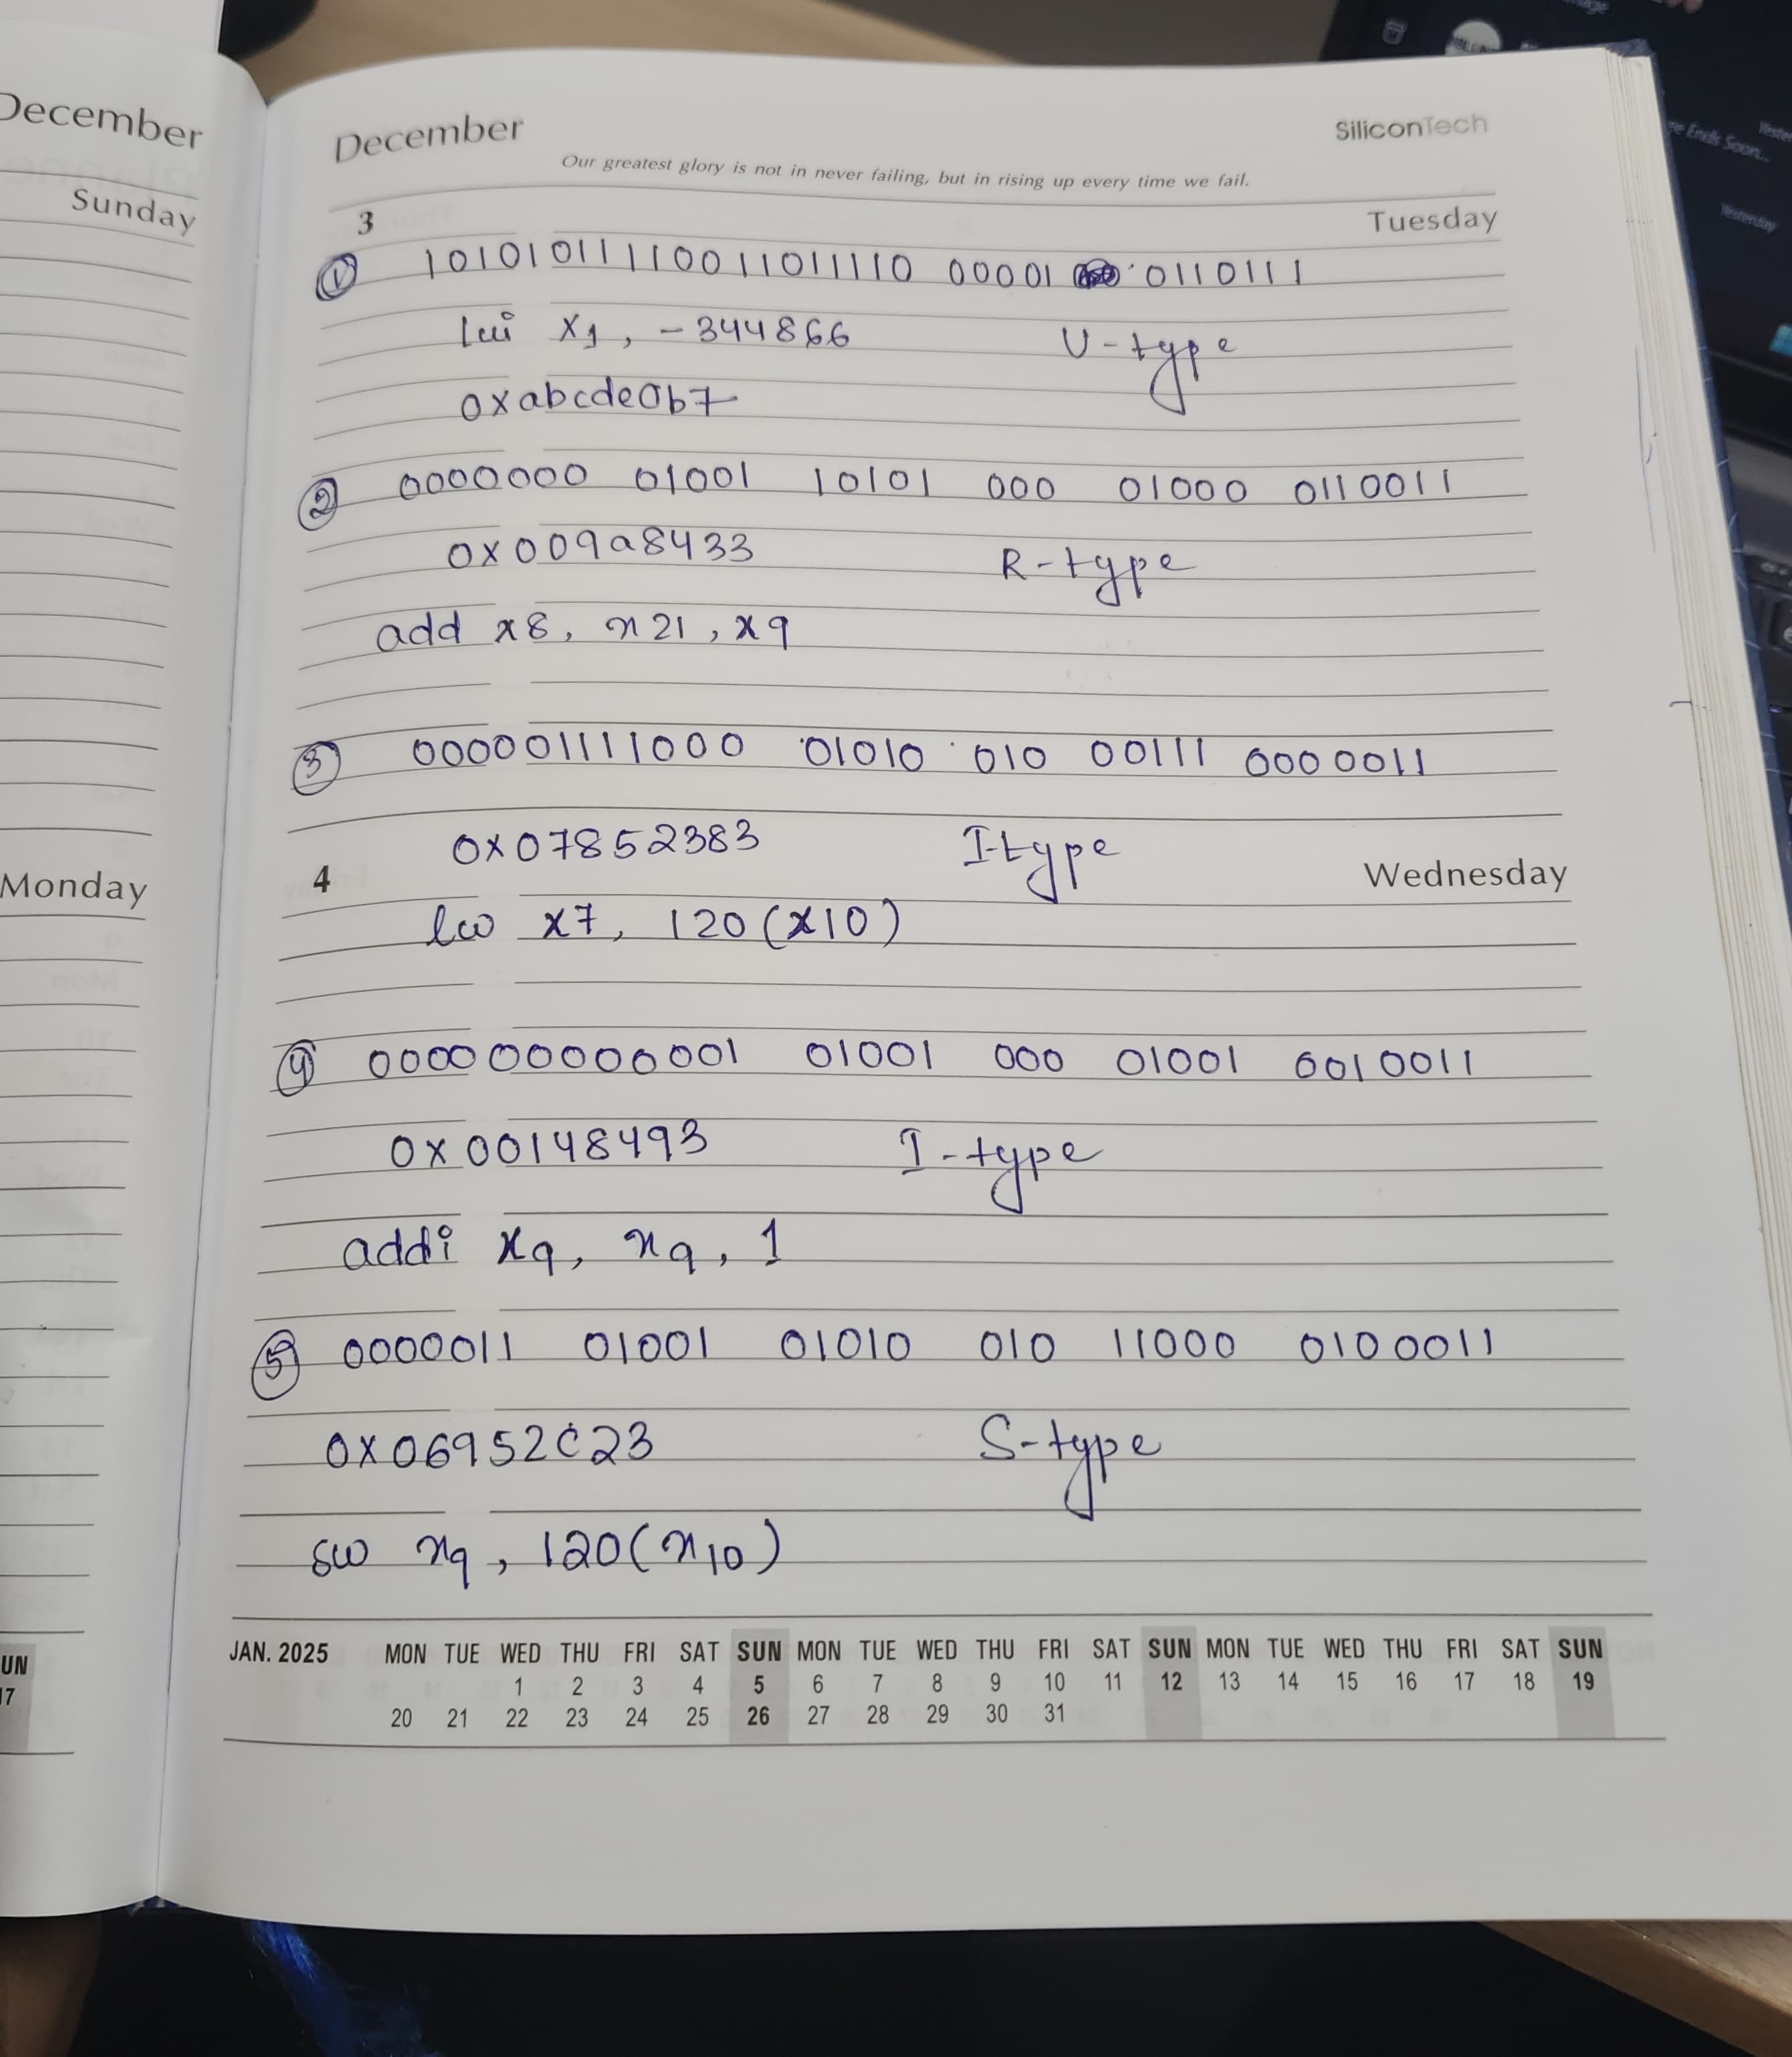 December
Sunday
Monday
UN
17
December
SiliconTech
Our greatest glory is not in never failing, but in rising up every time we fail.
3
Tuesday
① 10101011110011011110 00001 0110111
lui x1, -344866 U-type
0xabcde0b7
② 0000000 01001 10101 000 01000 0110011
0x009a8433 R-type
add x8, x21, x9
③ 000001111000 01010 010 00111 0000011
0x07852383 I-type
4
Wednesday
lw x7, 120(x10)
④ 000000000001 01001 000 01001 0010011
0x00148493 I-type
addi x9, x9, 1
⑤ 0000011 01001 01010 010 11000 0100011
0x06952C23 S-type
sw x9, 120(x10)
JAN. 2025 MON TUE WED THU FRI SAT SUN MON TUE WED THU FRI SAT SUN MON TUE WED THU FRI SAT SUN
1 2 3 4 5 6 7 8 9 10 11 12 13 14 15 16 17 18 19
20 21 22 23 24 25 26 27 28 29 30 31
Ends Soon...
Yesterday